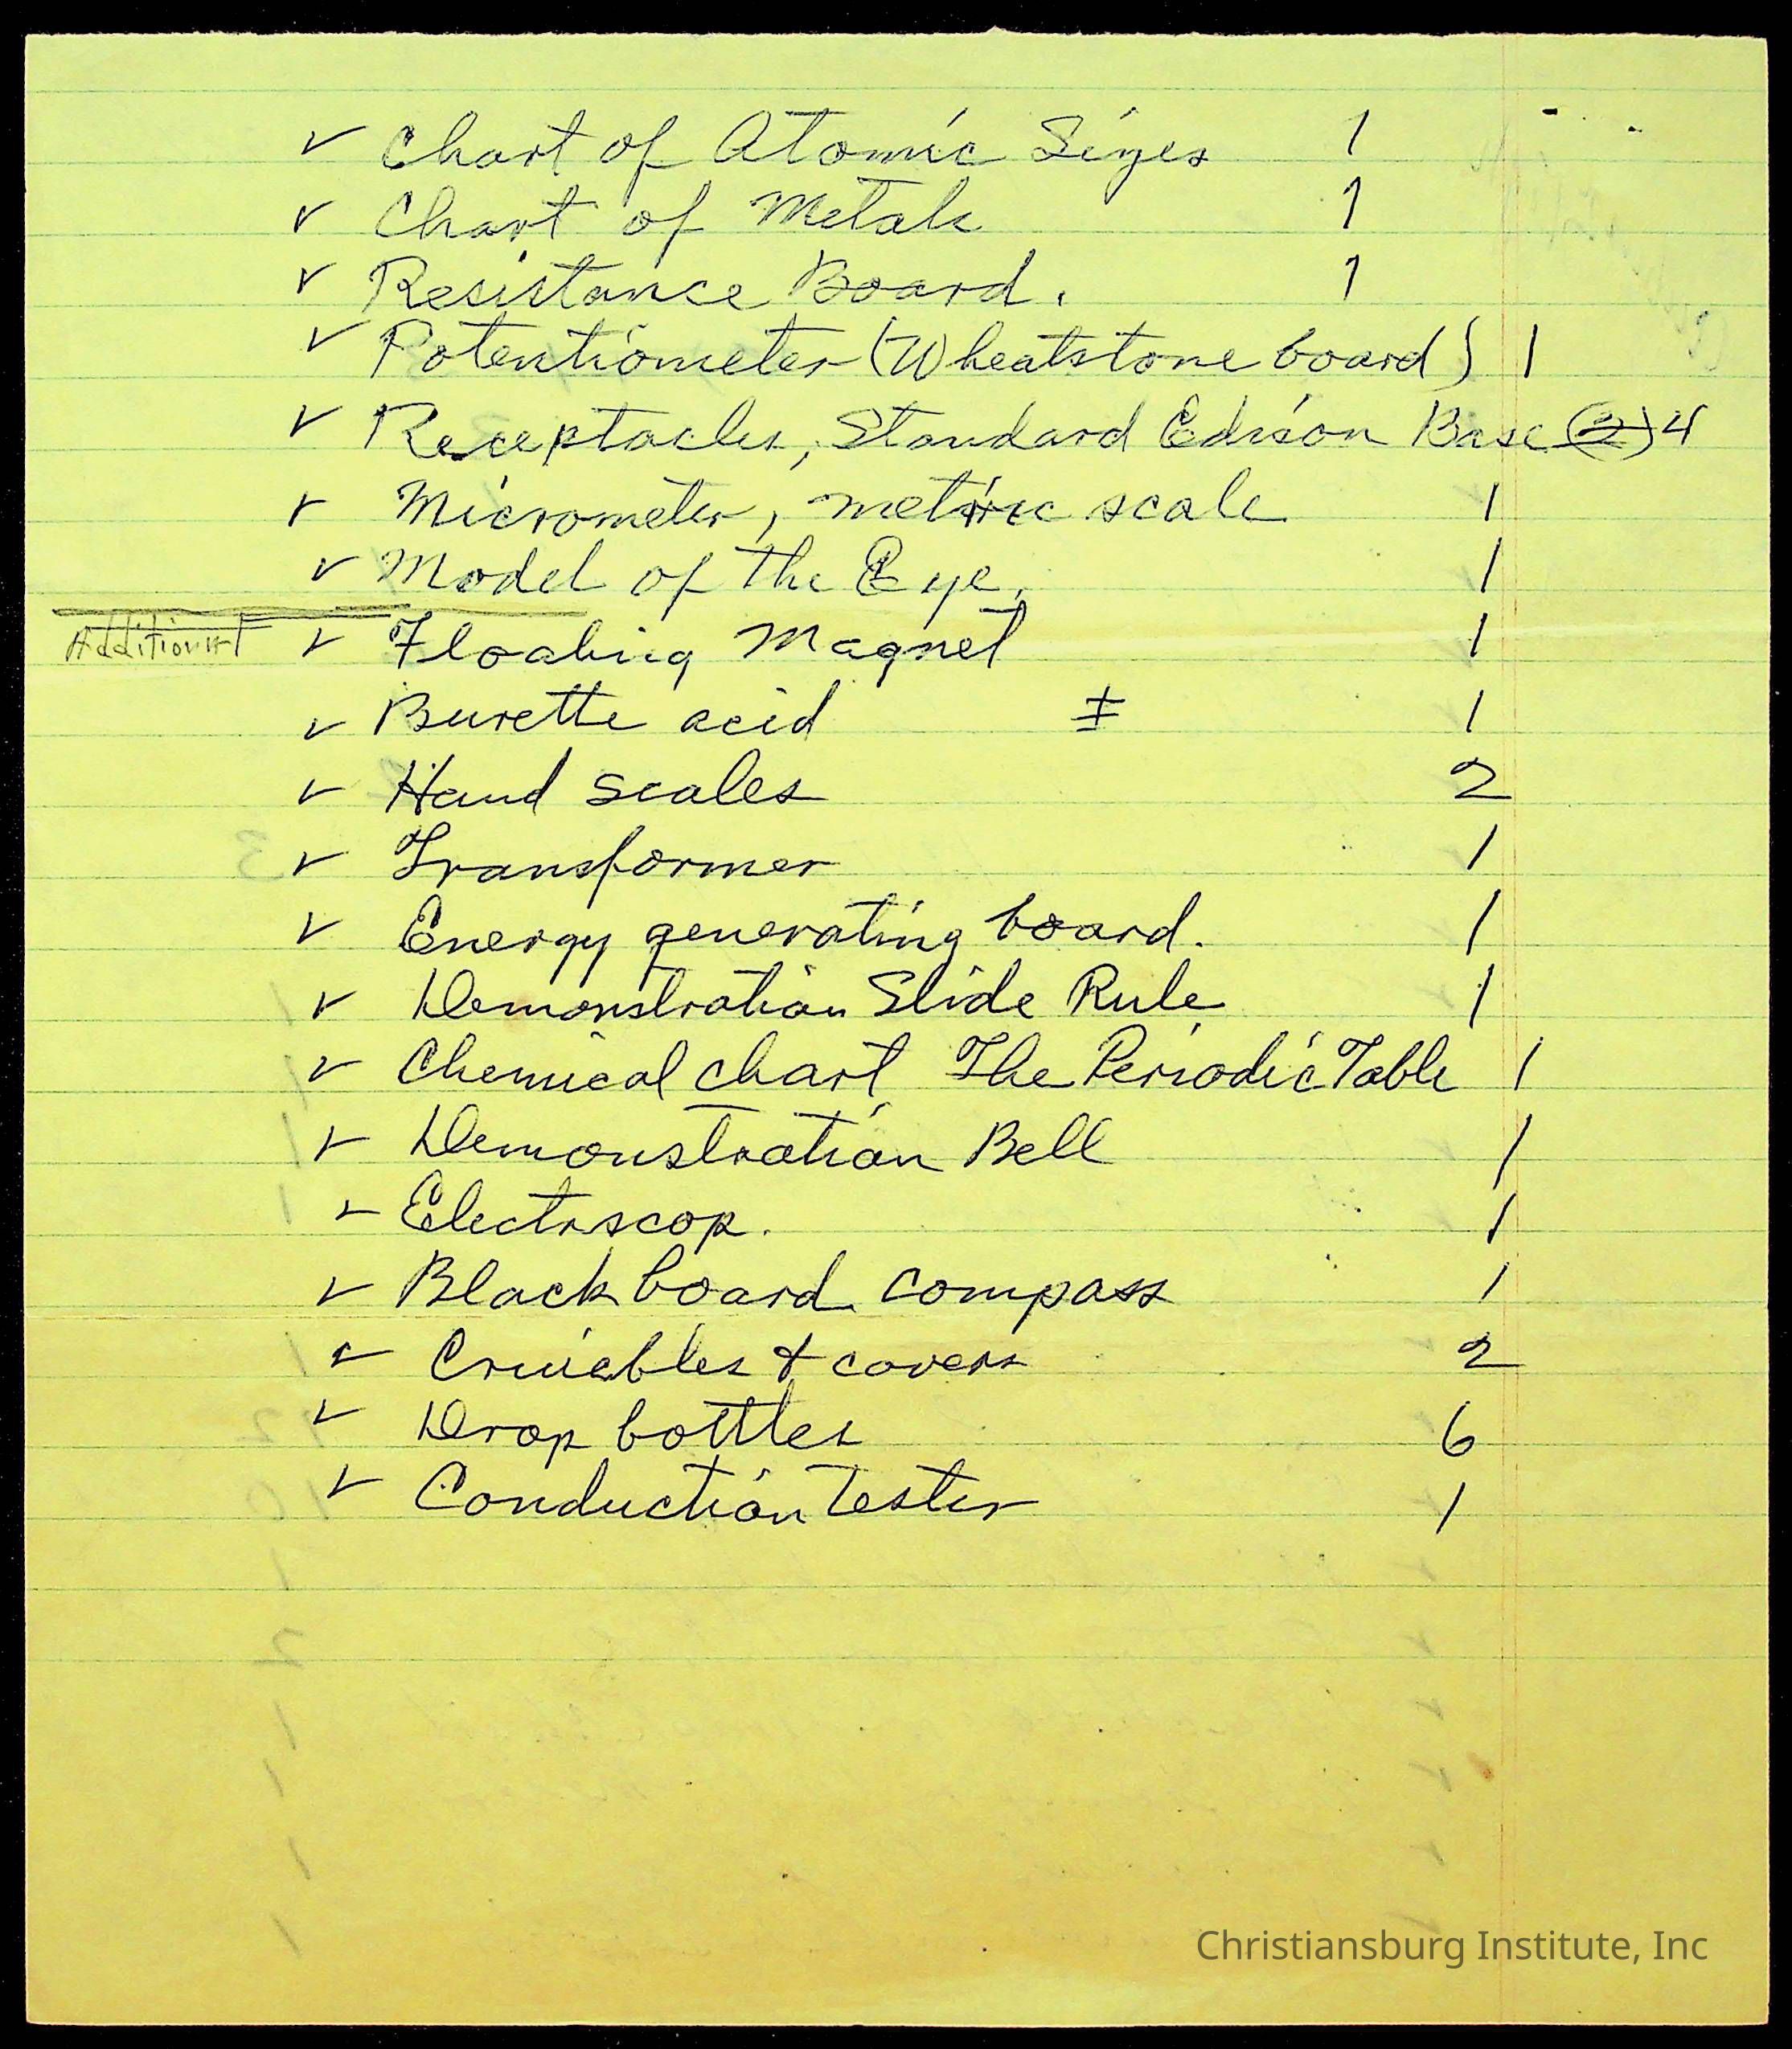 ✓ Chart of Atomic Sizes 1
✓ Chart of Metals 1
✓ Resistance Board. 1
✓ Potentiometer (Wheatstone board) 1
✓ Receptacles, Standard Edison Base (2) 4
✓ Micrometer, metric scale 1
✓ Model of the Eye. 1
Additional ✓ Floating Magnet 1
✓ Burette acid ± 1
✓ Hand scales 2
✓ Transformer 1
✓ Energy generating board. 1
✓ Demonstration Slide Rule 1
✓ Chemical chart The Periodic Table 1
✓ Demonstration Bell 1
✓ Electroscop. 1
✓ Blackboard compass 1
✓ Crucibles & covers 2
✓ Drop bottles 6
✓ Conduction Tester 1
Christiansburg Institute, Inc